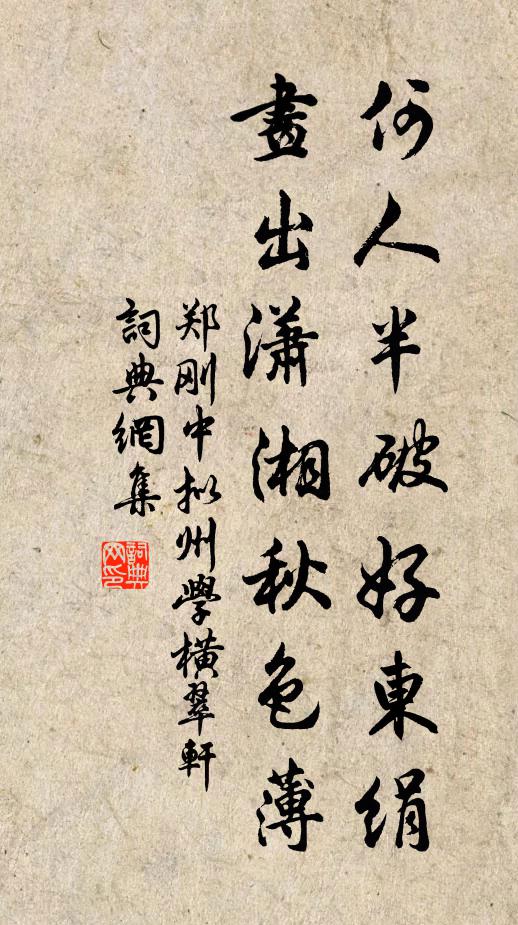 何人半破好東絹
畫出瀟湘秋色薄
郑刚中拟州學橫翠軒
詞典網集
詞典网印